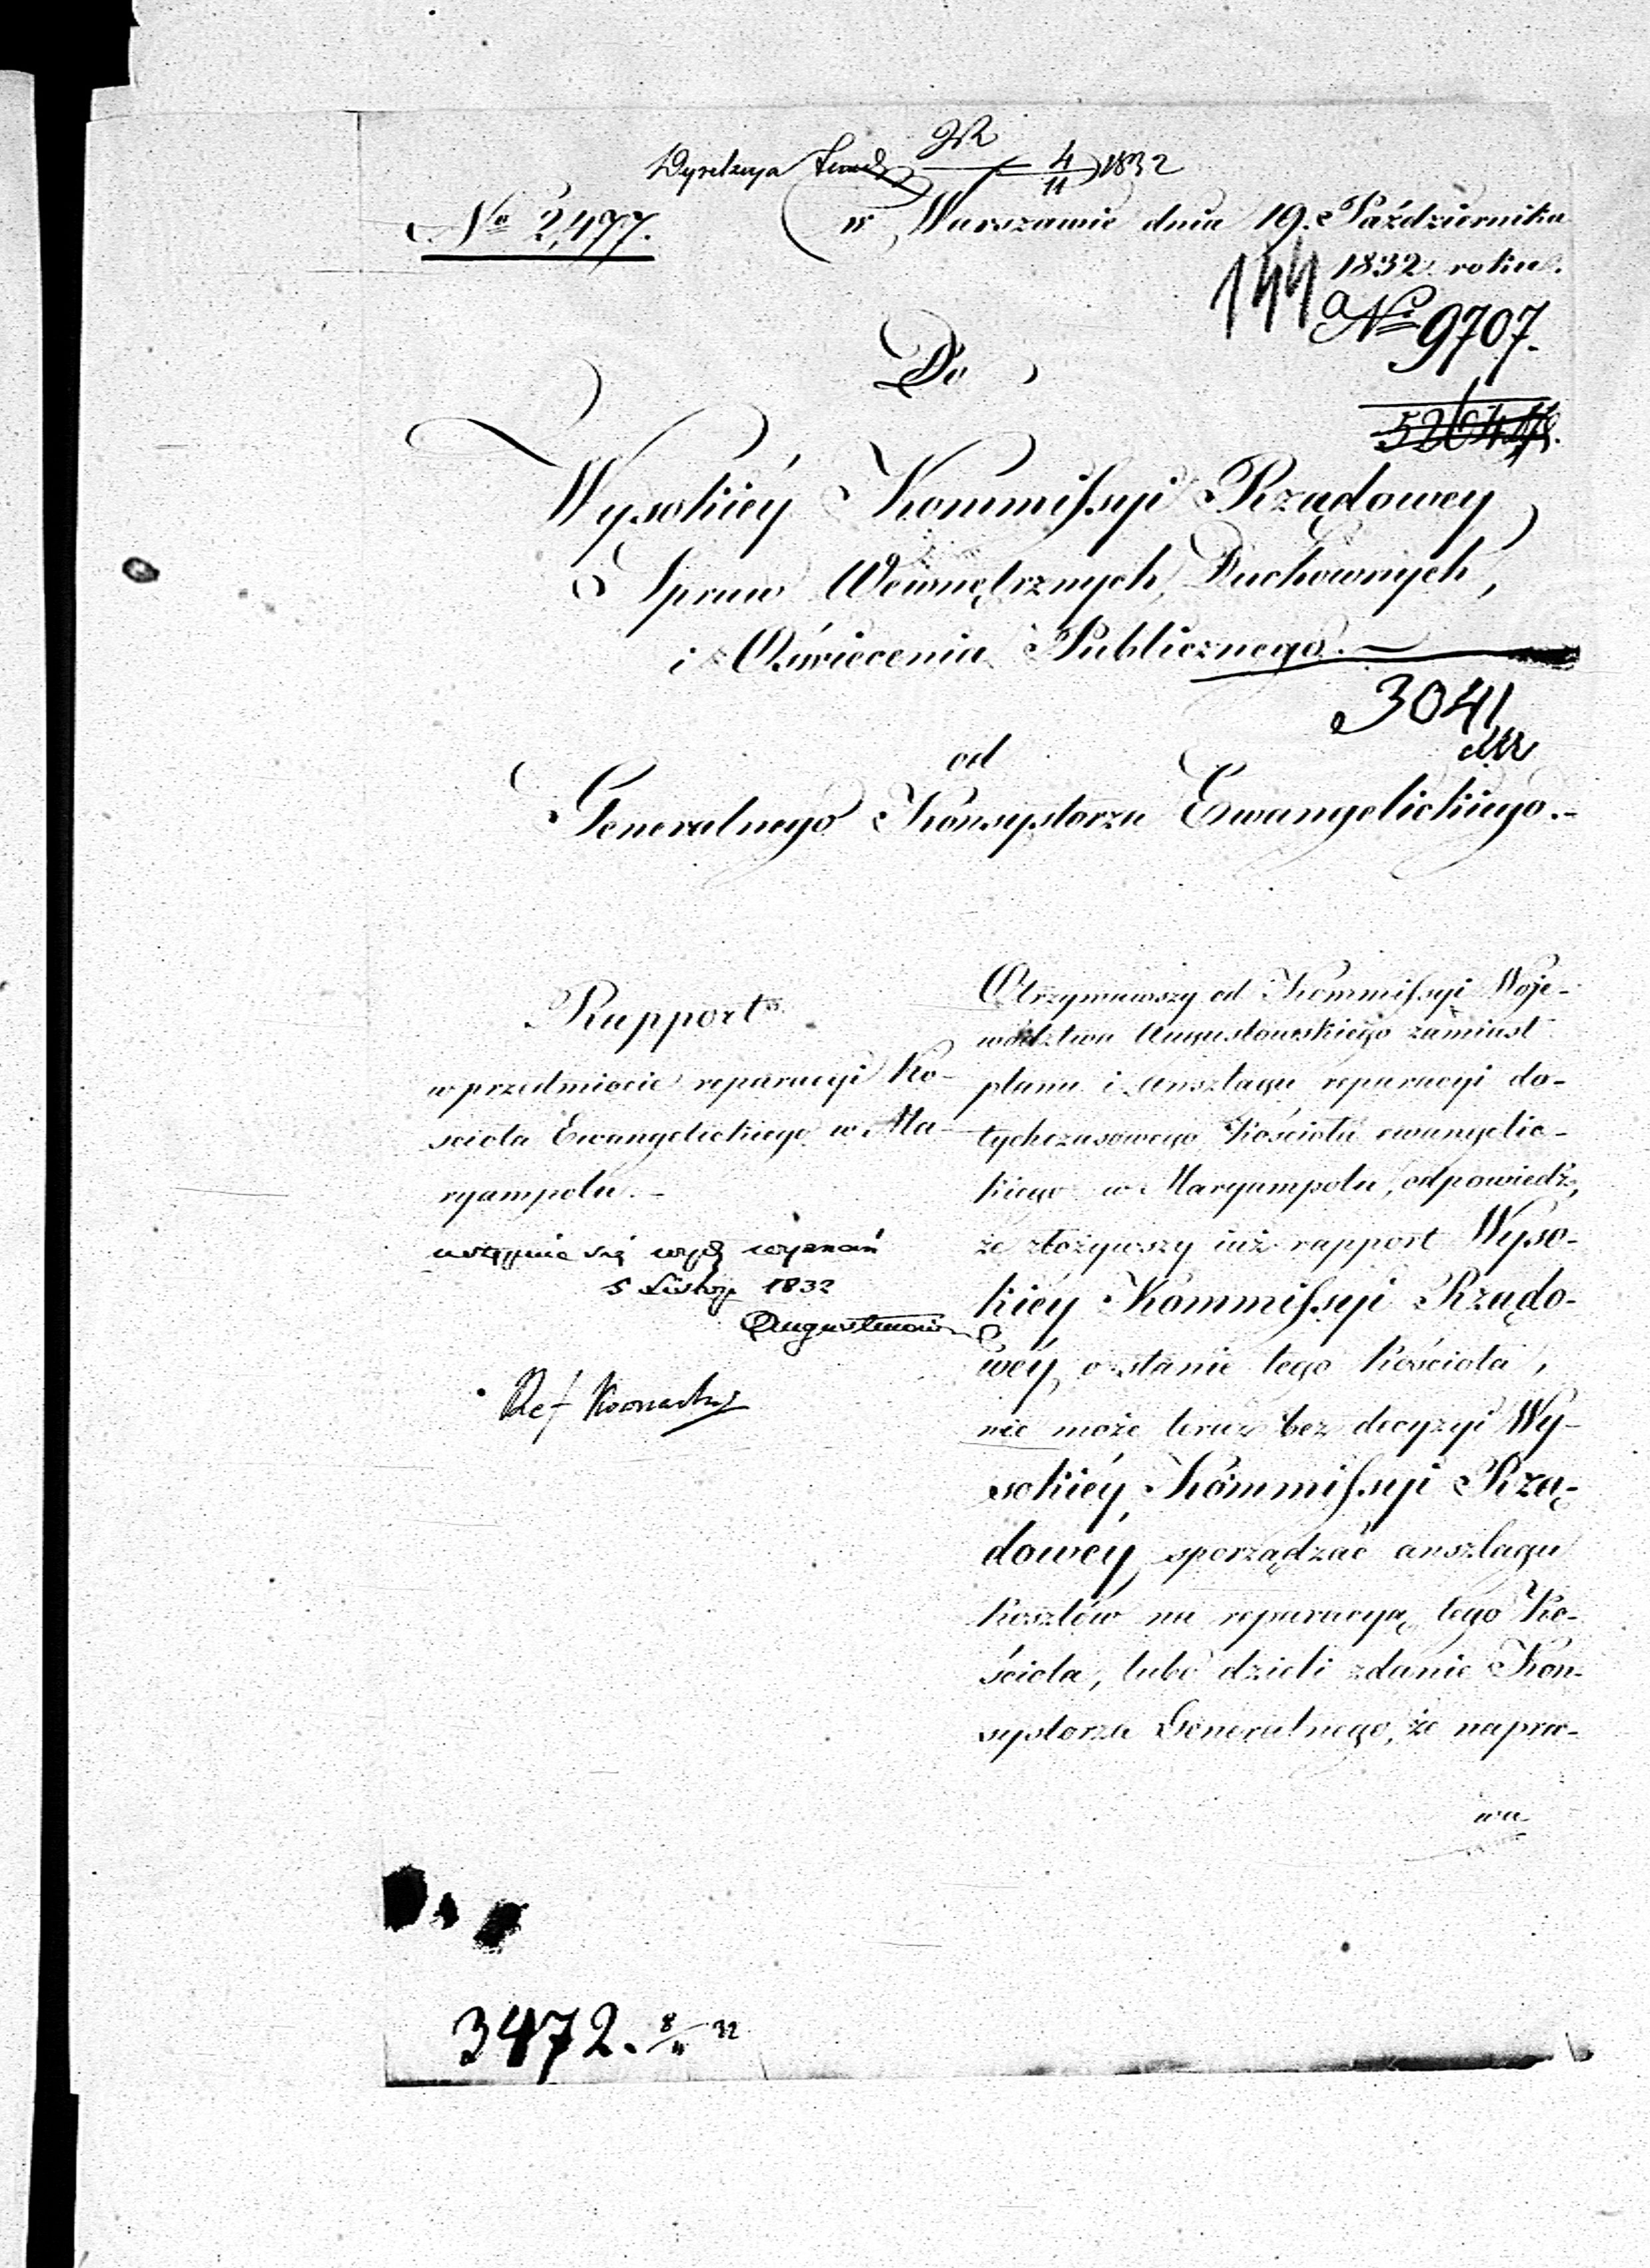 Dyrekcya
4/11 1832
No 2,477.
w Warszawie dnia 19. Października
1832 roku.
144
No 9707.
Do
Wysokiéy Kommissyi Rządowey
Spraw Wewnętrznych, Duchownych,
i Oświecenia Publicznego.
3041
od
Generalnego Konsystorza Ewangelickiego.-
Rapport
w przedmiocie reparacyi Ko-
scioła Ewangelickiego w Ma-
ryampolu.-
wyznań
5 Listop 1832
Ref
Otrzymawszy od Kommissyi Woje-
wództwa Augustowskiego zamiast
planu i anszlagu reparacyi do-
tychczasowego Kościoła ewangelic-
kiego w Maryampolu, odpowiedź,
że złożywszy już rapport Wyso-
kiéy Kommissyi Rządo-
wéy o stanie tego Kościoła,
nie może teraz bez decyzyi Wy-
sokiéy Kommissyi Rzą-
dowéy sporządzać anszlagu
kosztów na reparacyą tego Ko-
ścioła, lubo dzieli zdanie Kon-
systorza Generalnego, że napra-
wa
3472. 8/11 32